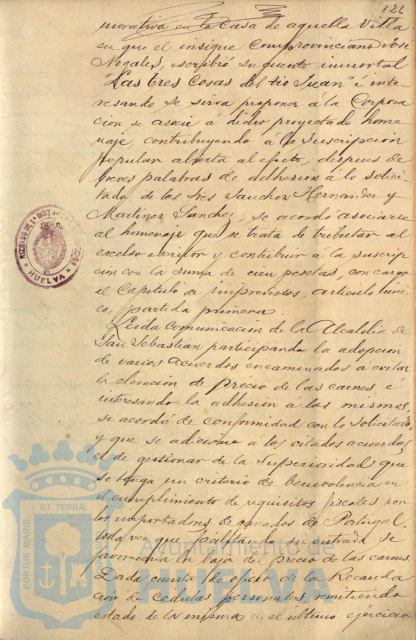 121
morativa en la Casa de aquella Villa
en que el insigne Comprovinciano José
Nogales, escribió su cuento inmortal
"Las tres Cosas del tio Juan" é inte-
resando se sirva proponer á la Corpora
cion se asocie á dicho proyectado home
naje, contribuyendo á la suscripcion
popular abierta al efecto, despues de
breves palabras de adhesion á lo solici-
tado de los Sres Sanchez Hernandez y
Martinez Sanchez, se acordó asociarse
al homenaje que se trata de tributar al
excelso escritor y contribuir á la suscrip
cion con la suma de cien pesetas, con cargo
al Capitulo de imprevistos, articulo úni
co, partida primera
Leida comunicacion de la Alcaldia de
San Sebastian participando la adopcion
de varios acuerdos encaminados á evitar
la elevacion de precio de las carnes é
interesando la adhesion á las mismos,
se acordó de conformidad con lo solicitado,
y que se adicione á los citados acuerdos,
el de gestionar de la Superioridad que
se tenga un criterio de benevolencia en
el cumplimiento de requisitos fiscales por
los importadores de ganados de Portugal,
toda vez que facilitando su entrada se
favorecia la baja del precio de las carnes.
Dada cuenta de oficio de la Recauda
cion de Cedulas personales, remitiendo
estado de la misma en el ultimo ejercicio
HUELVA
PORTUS MARIS ET TERRÆ
Ayuntamiento de
HUELVA